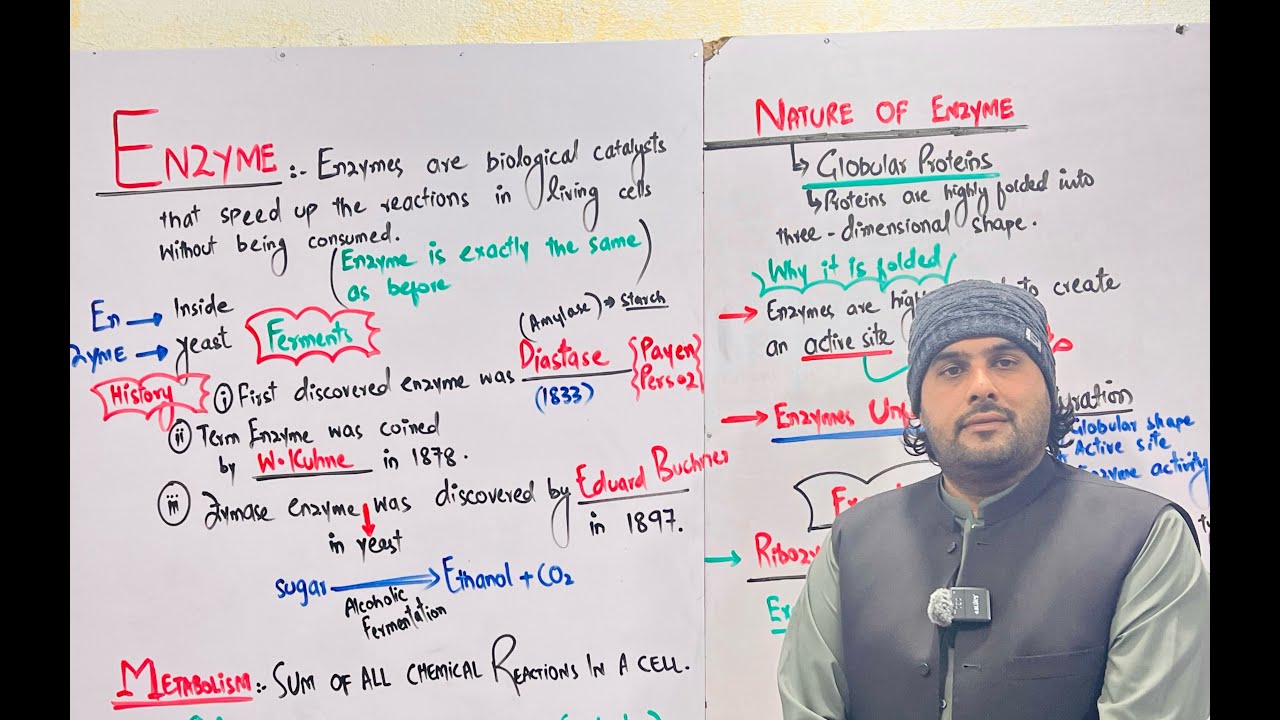 ENZYME :- Enzymes are biological catalysts
that speed up the reactions in living cells
without being consumed.
(Enzyme is exactly the same
as before)
En → Inside
ZYME → yeast
Ferments
History
(Amylase) → Starch
i) First discovered enzyme was Diastase {Payen
Persoz}
(1833)
ii) Term Enzyme was coined
by W. Kuhne in 1878.
iii) Zymase enzyme was discovered by Eduard Buchner
in 1897.
in yeast
sugar → Ethanol + CO2
Alcoholic
Fermentation
METABOLISM :- SUM OF ALL CHEMICAL REACTIONS IN A CELL.
NATURE OF ENZYME
↳ Globular Proteins
↳ Proteins are highly folded into
three-dimensional shape.
Why it is folded
→ Enzymes are to create
an active site
→ Enzymes
Globular shape
Active site
Enzyme activity
→